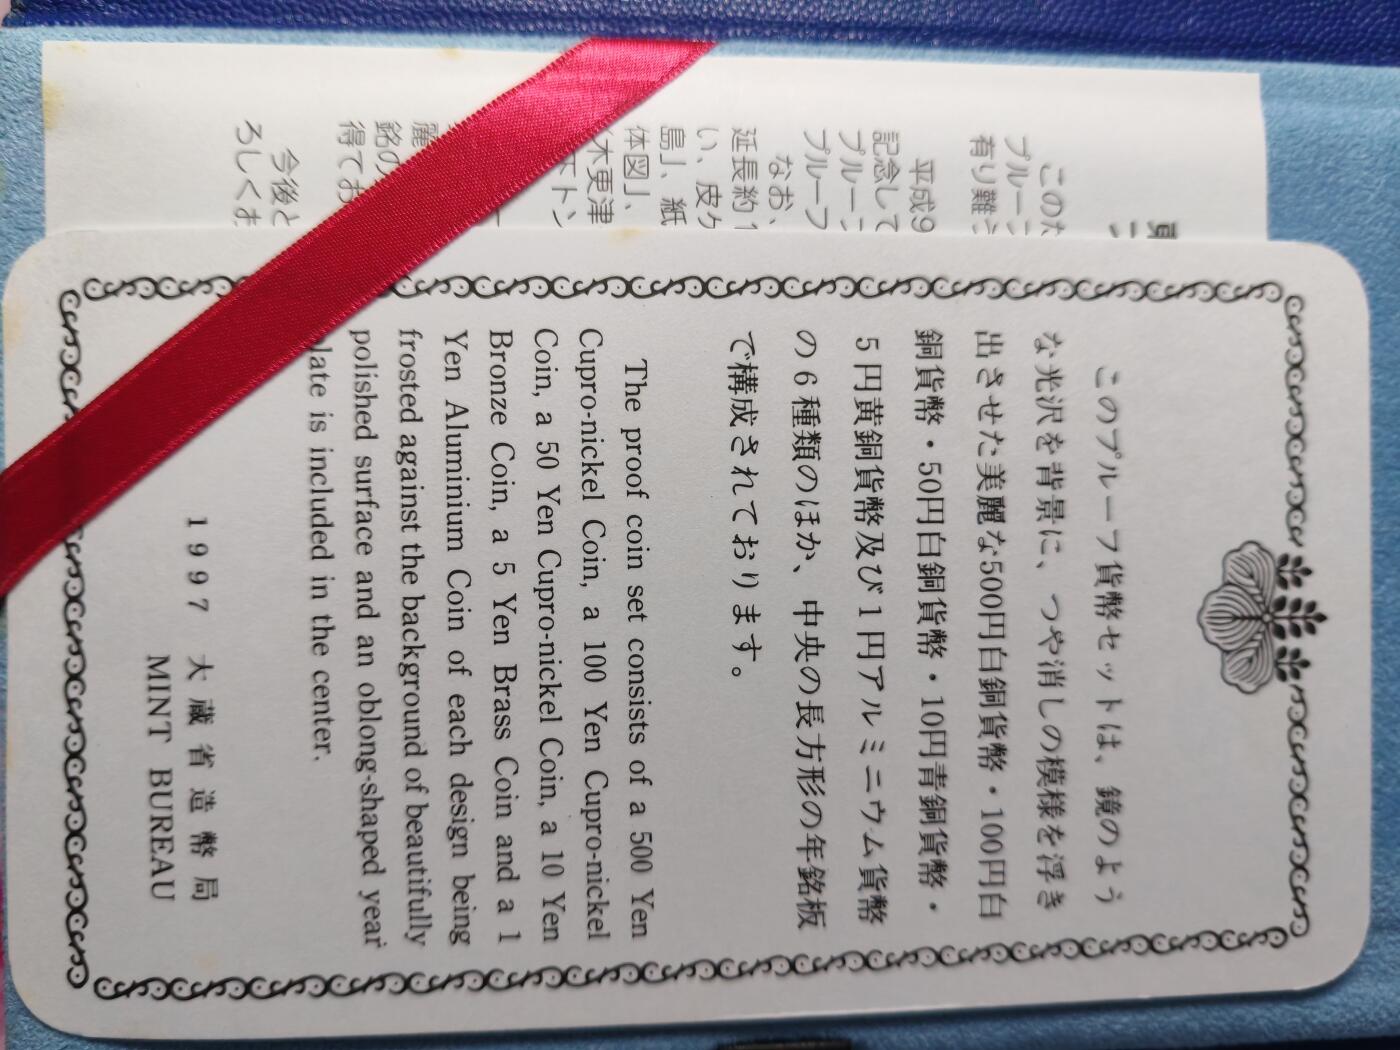 このプルーフ貨幣セットは、鏡のよう
な光沢を背景に、つや消しの模様を浮き
出させた美麗な500円白銅貨幣・100円白
銅貨幣・50円白銅貨幣・10円青銅貨幣・
5円黄銅貨幣及び1円アルミニウム貨幣
の6種類のほか、中央の長方形の年銘板
で構成されております。
The proof coin set consists of a 500 Yen
Cupro-nickel Coin, a 100 Yen Cupro-nickel
Coin, a 50 Yen Cupro-nickel Coin, a 10 Yen
Bronze Coin, a 5 Yen Brass Coin and a 1
Yen Aluminium Coin of each design being
frosted against the background of beautifully
polished surface and an oblong-shaped year
late is included in the center.
1997 大蔵省造幣局
MINT BUREAU
このた
プルーフ
有り難う
平成9
記念して
プルーフ
プルーフ
なお、
延長約1
い、皮ケ
島」、紙
体図」、
木更津
トン
麗
銘の
得てお
今後と
ろしくま